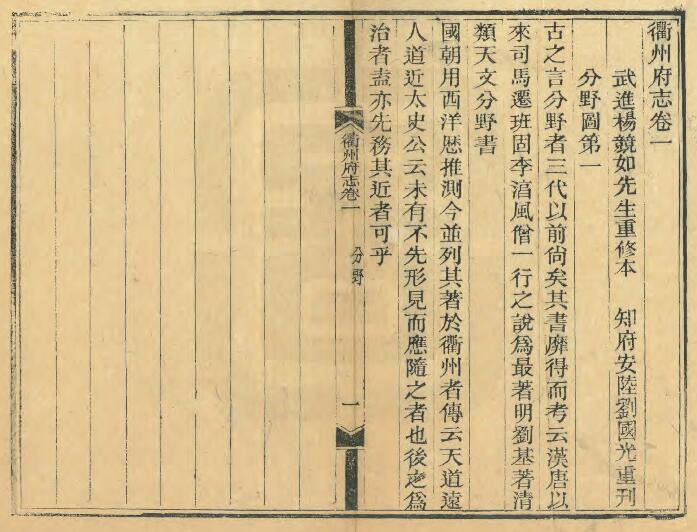 衢州府志卷一
武進楊競如先生重修本　知府安陸劉國光重刊
分野圖第一
古之言分野者三代以前尙矣其書靡得而考云漢唐以
來司馬遷班固李淳風僧一行之說爲最著明劉基著清
類天文分野書
國朝用西洋厯推測今並列其著於衢州者傳云天道遠
人道近太史公云未有不先形見而應隨之者也後之爲
治者盍亦先務其近者可乎
衢州府志卷一
分野
一